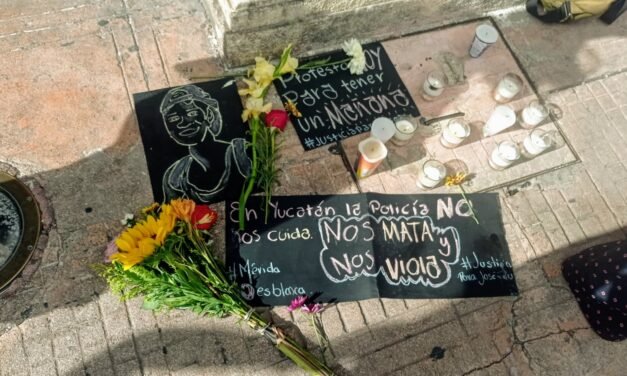 Protesto HOY
Para tener
un Mañana
En Yucatán la Policía NO
nos cuida. NOS MATA y
NOS Viola
#Mérida
Desblanca
#Justicia
Para José